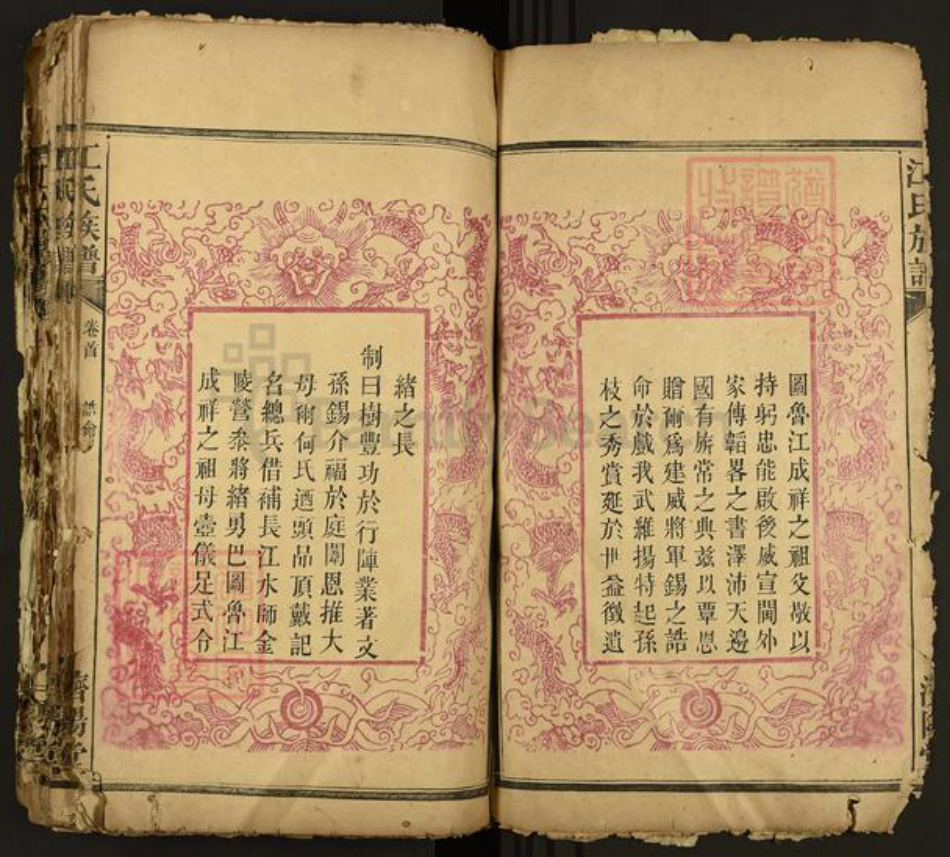 江氏族譜
圖魯江成祥之祖父敬以
持躬忠能啟後威宣閫外
家傳韜畧之書澤沛天邊
國有旂常之典兹以覃恩
贈爾爲建威將軍錫之誥
命於戲我武維揚特起孫
枝之秀賞延於世益徵遺
緒之長
制曰樹豐功於行陣業著文
孫錫介福於庭闈恩推大
母爾何氏迺頭品頂戴記
名總兵借補長江水師金
陵營叅將緒勇巴圖魯江
成祥之祖母壼儀足式令
江氏族譜
卷首
誥命
濟陽堂